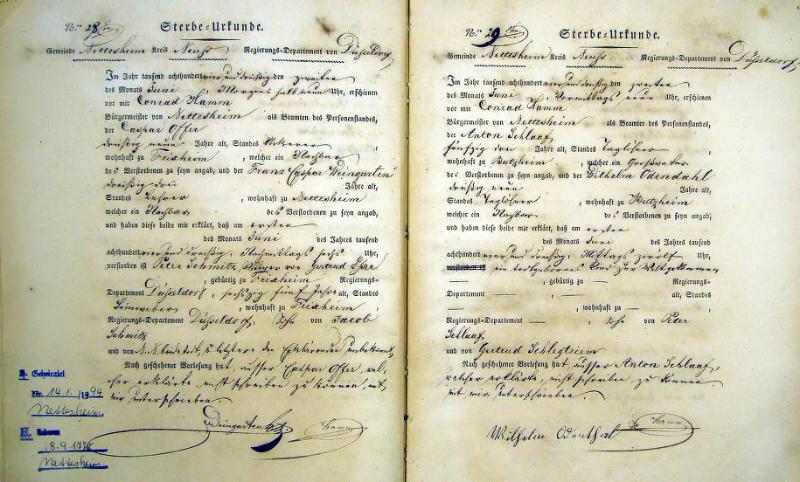 Nro. 28
Sterbe=Urkunde.
Gemeinde Nettesheim Kreis Neuss Regierungs=Departement von Düsseldorf
Im Jahr tausend achthundert vier und dreißig den zweiten
des Monats Juni Morgens halb neun Uhr, erschienen
vor mir Conrad Hamm
Bürgermeister von Nettesheim als Beamten des Personenstandes,
der Caspar Offer
dreißig neun Jahre alt, Standes Ackerer,
wohnhaft zu Frixheim, welcher ein Nachbar
des Verstorbenen zu seyn angab, und der Franz Caspar Weingarten
dreißig drei Jahre alt,
Standes Lehrer, wohnhaft zu Nettesheim
welcher ein Nachbar des Verstorbenen zu seyn angab,
und haben diese beide mir erklärt, daß am ersten
des Monats Juni des Jahres tausend
achthundert vier und dreißig, Nachmittags sechs Uhr,
verstorben ist Peter Schmitz, Wittwer von Gertrud Esser
, gebürtig zu Frixheim Regierungs=
Departement Düsseldorf, sechszig fünf Jahre alt, Standes
Leinweber, wohnhaft zu Frixheim
Regierungs=Departement Düsseldorf, Sohn von Jacob
Schmitz
und von N. N. letztere den Erklärenden unbekannt
Nach geschehener Vorlesung hat, ausser Caspar Offer, wel=
cher erklärte, nicht schreiben zu können, mit
mir unterschrieben.
Weingarten Hamm
Geheiratet
14.1.1794
Nettesheim
8.9.1776
Nettesheim
Nro. 29
Sterbe=Urkunde.
Gemeinde Nettesheim Kreis Neuss Regierungs=Departement von Düsseldorf
Im Jahr tausend achthundert vier und dreißig den zweiten
des Monats Juni Vormittags neun Uhr, erschienen
vor mir Conrad Hamm
Bürgermeister von Nettesheim als Beamten des Personenstandes,
der Anton Schlaaf,
fünfzig drei Jahre alt, Standes Taglöhner,
wohnhaft zu Butzheim, welcher ein Großvater
des Verstorbenen zu seyn angab, und der Wilhelm Odendahl
dreißig neun Jahre alt,
Standes Taglöhner, wohnhaft zu Butzheim
welcher ein Nachbar des Verstorbenen zu seyn angab,
und haben diese beide mir erklärt, daß am ersten
des Monats Juni des Jahres tausend
achthundert vier und dreißig, Mittags zwölf Uhr,
verstorben ist ein todtgebornes Kind zur Welt gekommen
, gebürtig zu Regierungs=
Departement alt, Standes
, wohnhaft zu
Regierungs=Departement, Sohn von Peter
Schlaaf,
und von Gertrud
Nach geschehener Vorlesung hat, ausser Anton Schlaaf,
welcher erklärte, nicht schreiben zu können
mit mir unterschrieben.
Wilhelm Odenthal Hamm